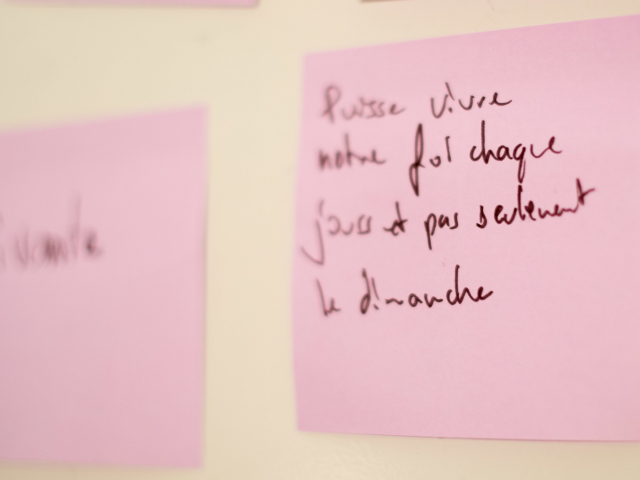 Puisse vivre
notre foi chaque
jours et pas seulement
le dimanche